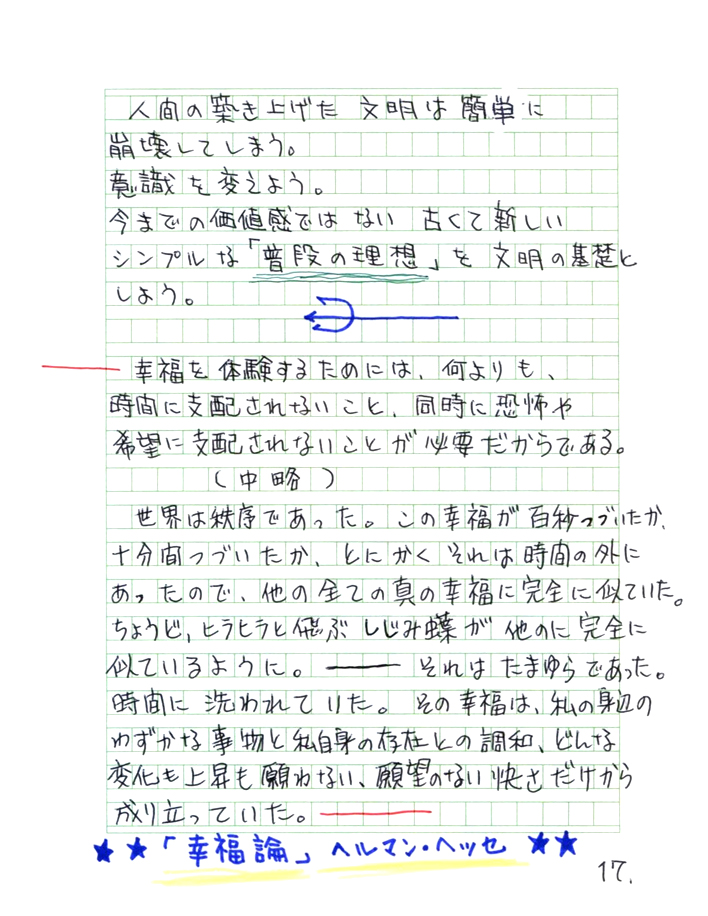 人間の築き上げた 文明は 簡単に
崩壊してしまう。
意識を変えよう。
今までの価値感ではない 古くて新しい
シンプルな「普段の理想」を 文明の基礎と
しよう。
幸福を体験するためには、何よりも、
時間に支配されないこと、同時に恐怖や
希望に支配されないことが必要だからである。
(中略)
世界は秩序であった。この幸福が百秒つづいたか、
十分間つづいたか、とにかくそれは時間の外に
あったので、他の全ての真の幸福に完全に似ていた。
ちょうど、ヒラヒラと飛ぶしじみ蝶が他のに完全に
似ているように。――それはたまゆらであった。
時間に洗われていた。その幸福は、私の身辺の
わずかな事物と私自身の存在との調和、どんな
変化も上昇も願わない、願望のない快さだけから
成り立っていた。――
★★「幸福論」ヘルマン・ヘッセ ★★
17.